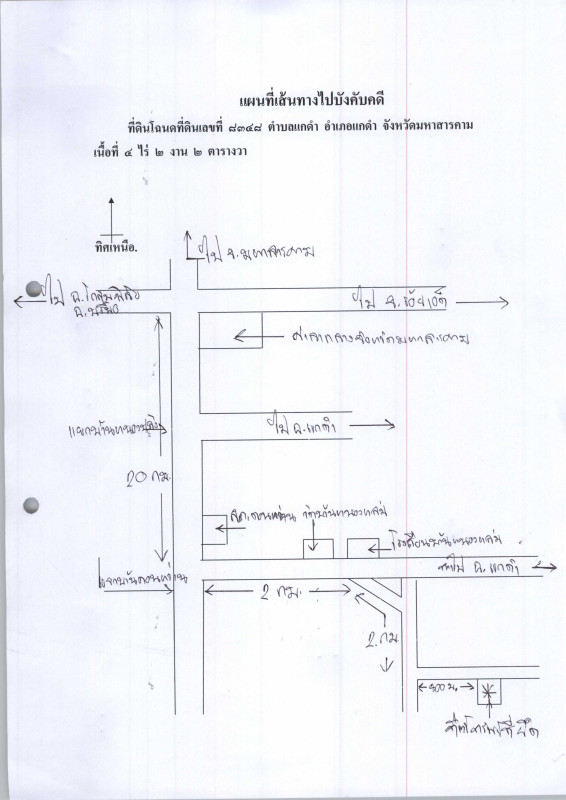 แผนที่เส้นทางไปบังคับคดี
ที่ดินโฉนดที่ดินเลขที่ ๘๓๔๘ ตำบลแกดำ อำเภอแกดำ จังหวัดมหาสารคาม
เนื้อที่ ๔ ไร่ ๒ งาน ๒ ตารางวา
ทิศเหนือ.
ไป จ.มหาสารคาม
ไป อ.โกสุมพิสัย
อ.บรบือ
ไป จ.ร้อยเอ็ด
ศาลากลางจังหวัดมหาสารคาม
ไป อ.แกดำ
20 กม.
วัดบ้านหนองแสน
โรงเรียนบ้านหนองแสน
ไป อ.แกดำ
2 กม.
2 กม
400 ม.
ที่ยึด